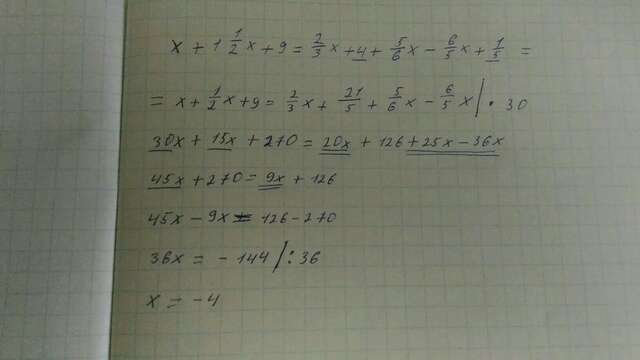 x + 1 1/2 x + 9 = 2/3 x + 4 + 5/6 x - 6/5 x + 1/5 =
= x + 1/2 x + 9 = 2/3 x + 21/5 + 5/6 x - 6/5 x | · 30
30x + 15x + 270 = 20x + 126 + 25x - 36x
45x + 270 = 9x + 126
45x - 9x = 126 - 270
36x = - 144 | : 36
x = - 4